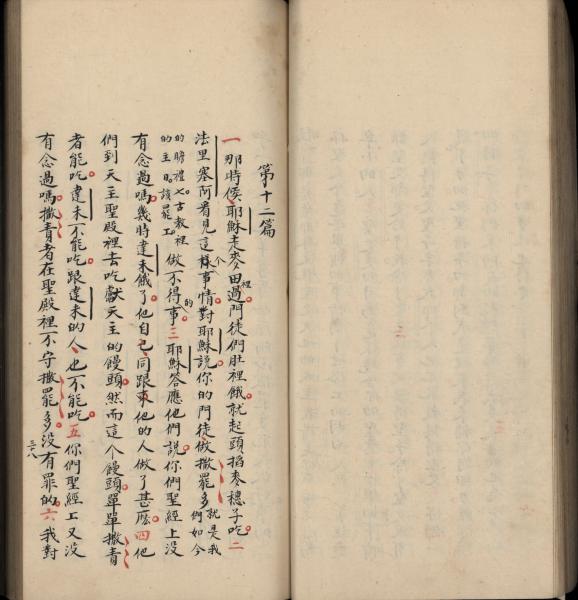 第十二篇
一那時候耶穌走麥田裡過門徒們肚裡餓就起頭掐麥穗子吃二
法里塞阿看見這個樣事情對耶穌說你的門徒做撒罷多就是我們如今
的瞻禮七古教裡的主日該罷工做不得的事三耶穌答應他們說你們聖經上没
有念過嗎幾時達未餓了他自己同跟來他的人做了甚麽四他
們到天主聖殿裡去吃獻天主的饅頭然而這个饅頭單單撒責
者能吃達未不能吃跟達未的人也不能吃五你們聖經上又没
有念過嗎撒責者在聖殿裡不守撒罷多没有罪的六我對
三六八